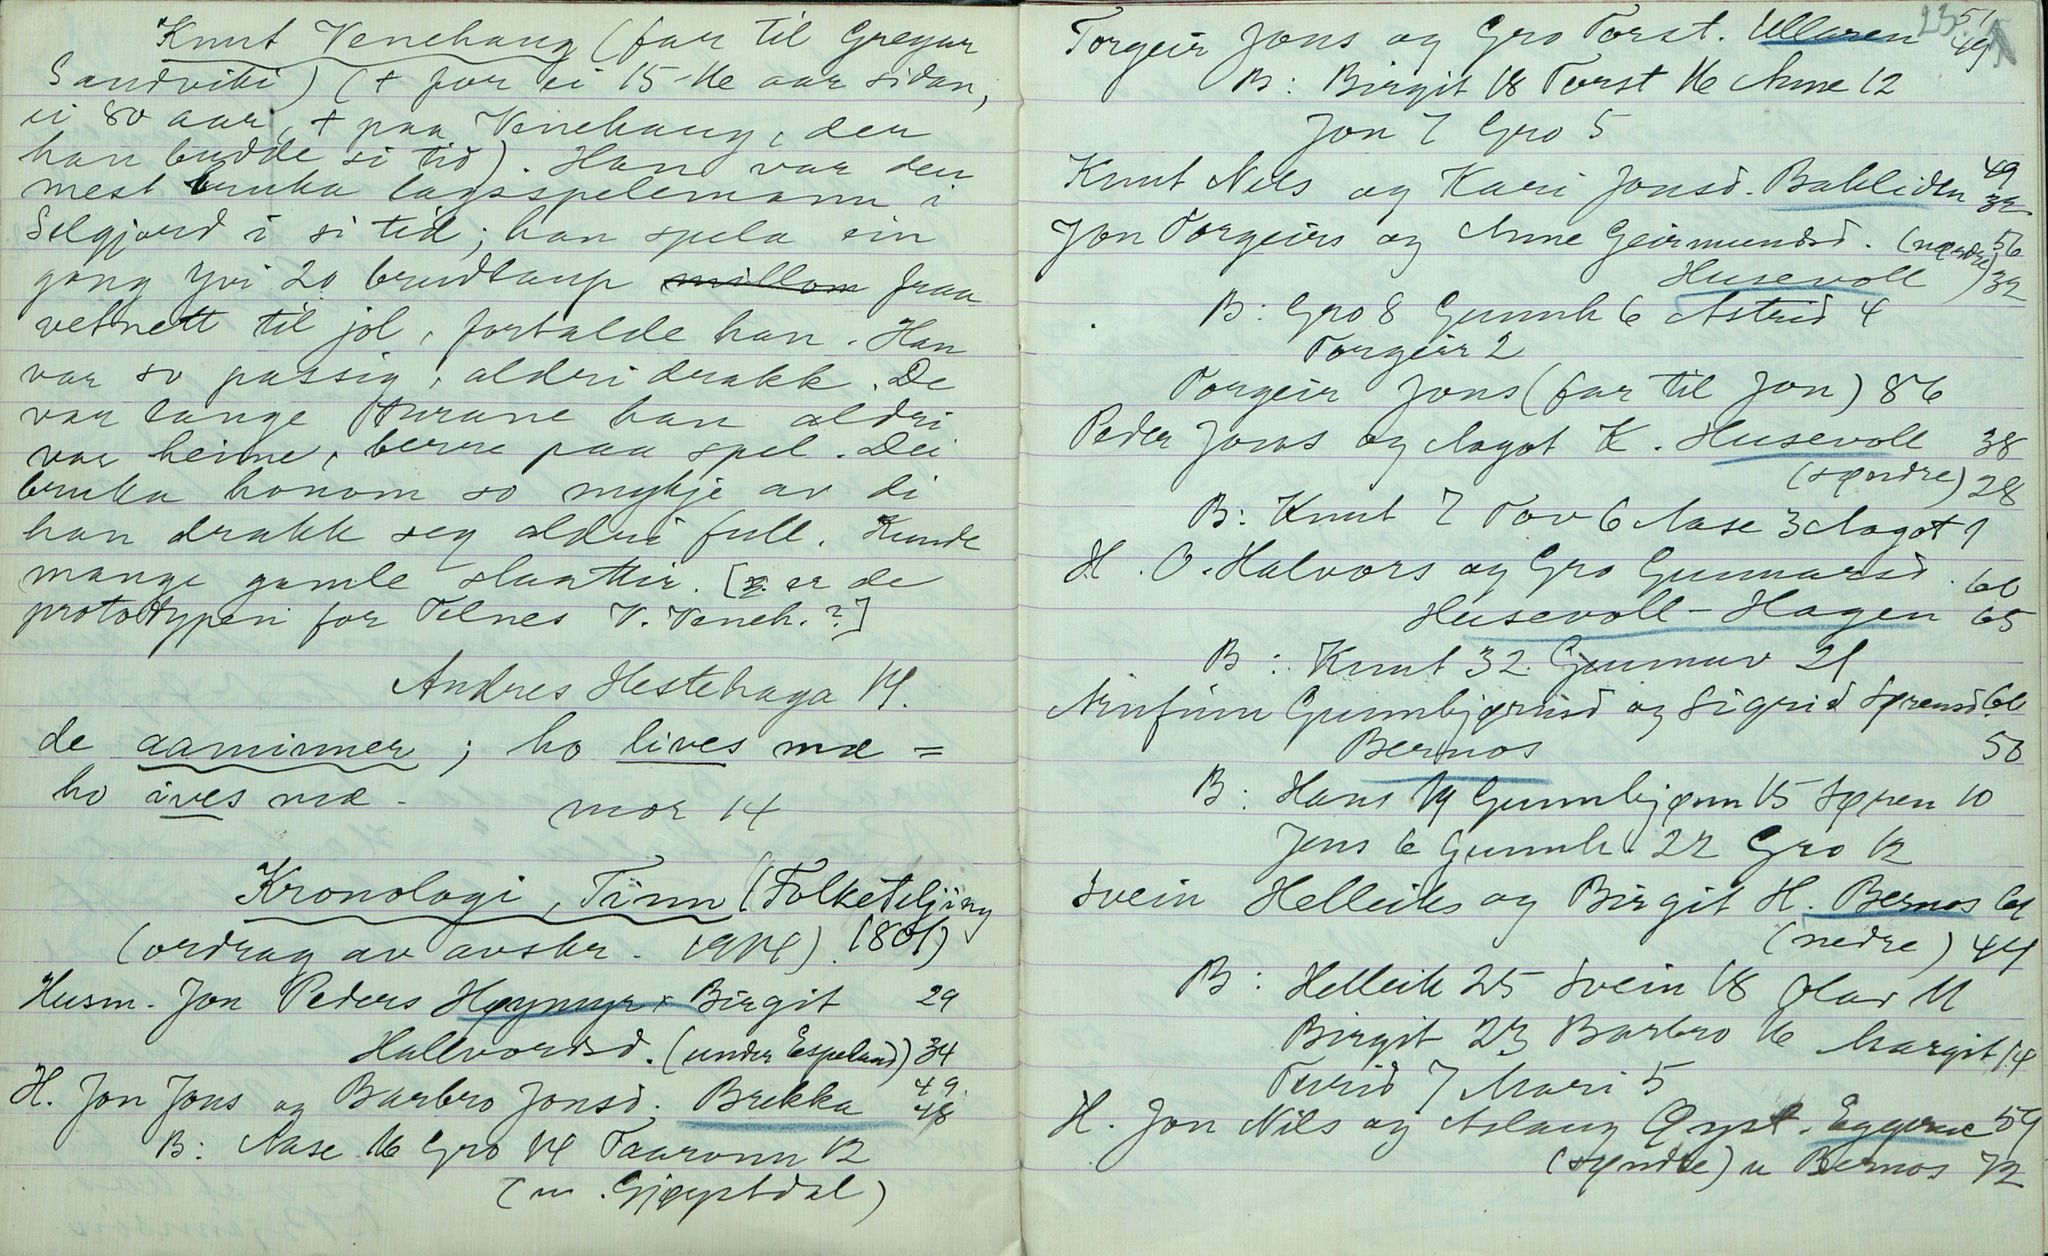 Knut Venehaug (far til Gregar
Sandviki) (+ for ei 15-16 aar sidan,
ei 80 aar, + paa Venehaug, der
han budde si tid). Han var den
mest bruka lagsspelemann i
Selgjord i si tid; han spela ein
gong yvi 20 brudlaup millom fraa
vetnett til jol, fortalde han. Han
var so passig, aldri drakk. De
var lange turane han aldri
var heime, berre paa spel. Dei
bruka honom so mykje av di
han drakk seg aldri full. Kunde
mange gamle slaattir. [ er de
prototypen for Telnes V. Veneh.?]
Andres Hestehaga 14.
de aaminner; ho lives mæ =
ho ives mæ -
mor 14
Kronologi, Tinn (Folketeljing
(ordrag av avskr. 1914). 1801)
Husm. Jon Peders Høymyr & Birgit 29
Hallvordsd. (under Espeland) 34
H. Jon Jons og Barbro Jonsd. Brekka 49
48
B: Aase 16 Gro 14 Taaronn 12
(u. Gjøystdal)
23
Torgeir Jons og Gro Torst. Ullaren 51
49
B: Birgit 18 Torst 16 Anne 12
Jon 7 Gro 5
Knut Nils og Kari Jonsd. Bakliden 49
32
Jon Torgeirs og Anne Geirmundsd. (nørdre) 56
Husevoll 32
B: Gro 8 Gunnh 6 Astrid 4
Torgeir 2
Torgeir Jons (far til Jon) 86
Peder Jons og Aagot K. Husevoll 38
(søndre) 28
B: Knut 7 Tov 6 Aase 3 Aagot 1
H. O. Halvors og Gro Gunnarsd. 60
Husevoll-Hagen 65
B: Knut 32 Gunnuv 21
Arnfinn Gunnbjørnsd og Sigrid Sørensd 61
Bernos 50
B: Hans 19 Gunnbjønn 15 Søren 10
Jens 6 Gunnh. 22 Gro 12
Svein Helleiks og Birgit H. Bernos 61
(nedre) 44
B: Helleik 25 Svein 18 Olav 11
Birgit 23 Barbro 16 Margit 14
Turid 7 Mari 5
H. Jon Nils og Aslaug Øyst. Eggerue 59
(søndre) u Bernos 72